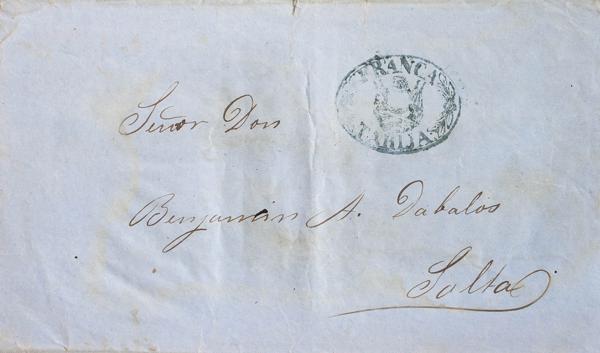 FRANCA
TARIJA
Señor Don
Benjamin A. Dabalos
Salta